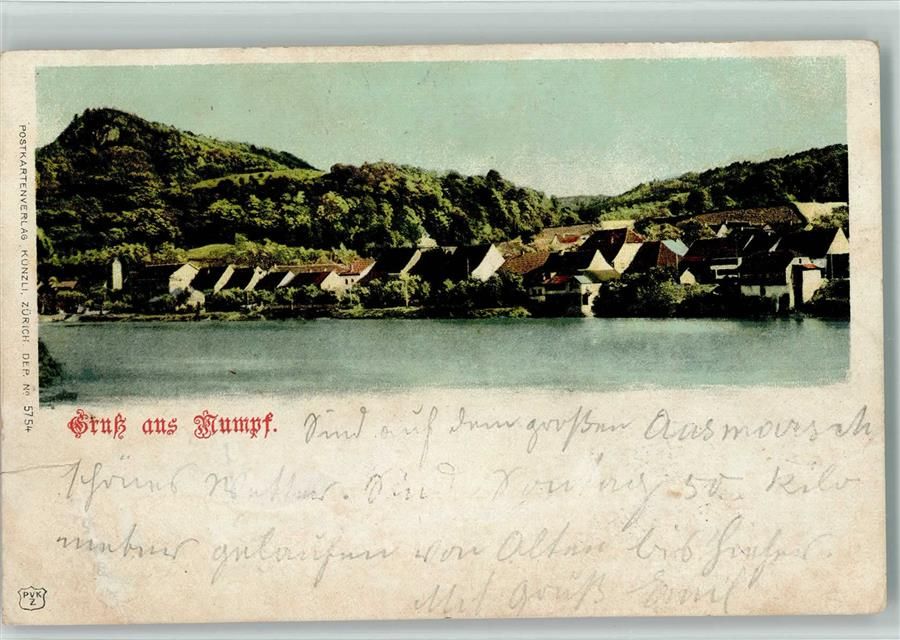 POSTKARTENVERLAG KÜNZLI, ZÜRICH DEP. No 5754
Gruß aus Mumpf.
Sind auf dem großen Ausmarsch
schönes Wetter. Sind Sontag 50 Kilo
meter gelaufen von Olten bis hieher.
Mit Gruß Emil
PVK
Z